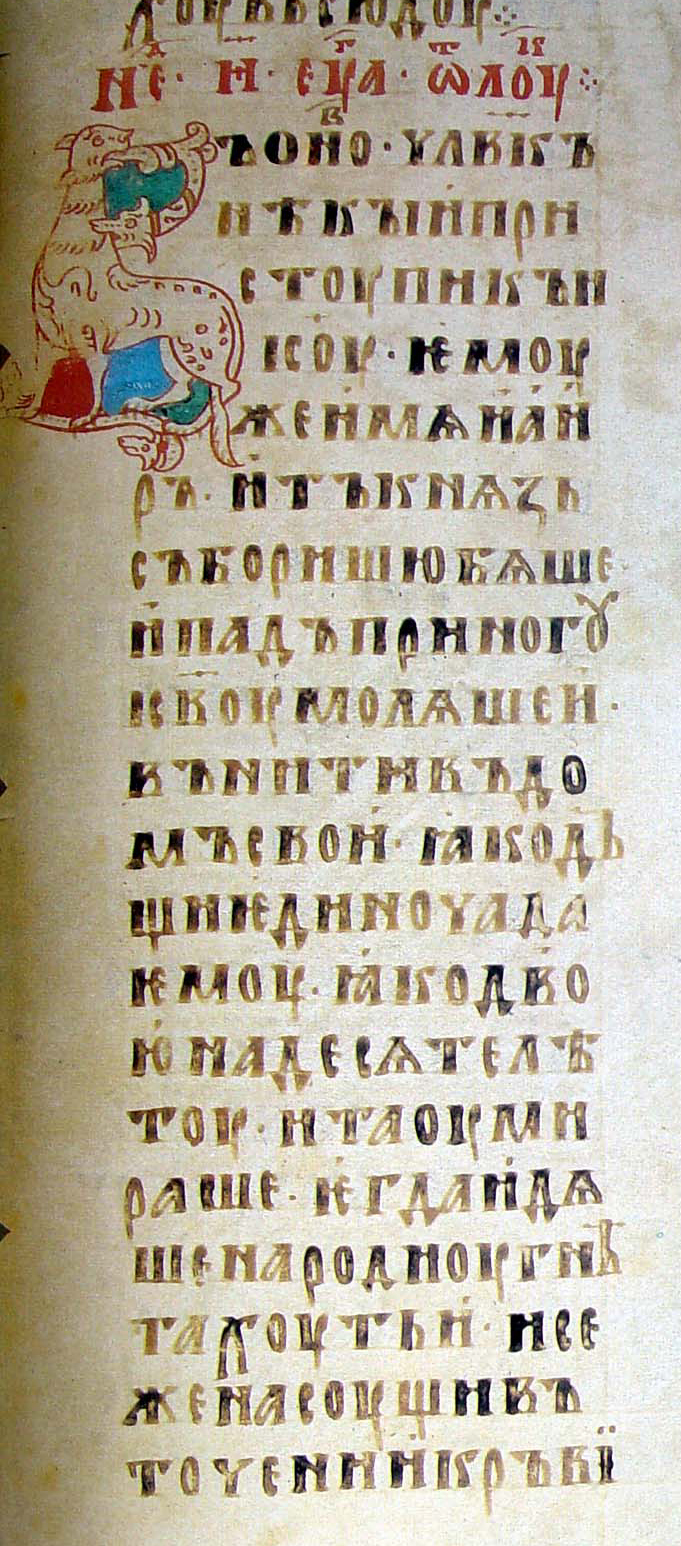 хоувьсюдоу
не · и · еуⷢа · ѿ лоуⷦ
Въоно · члвкъ
нѣкъıипри
стоупикъи
ісоу · ѥмоу
жеимѧиаи
ръ · итъкнѧзь
съборишюбѧше
ипадъприногꙋ
ісвоумолѧшеи ·
вънитивъдо
мъсвои · ꙗкодъ
щиѥдиночада
ѥмоу · ꙗкодво
юнадесѧтелѣ
тоу · итаоуми
раше · ѥгдаидѧ
шенародиоугнѣ
тахоутьи · исе
женасоущивъ
точениикръвї